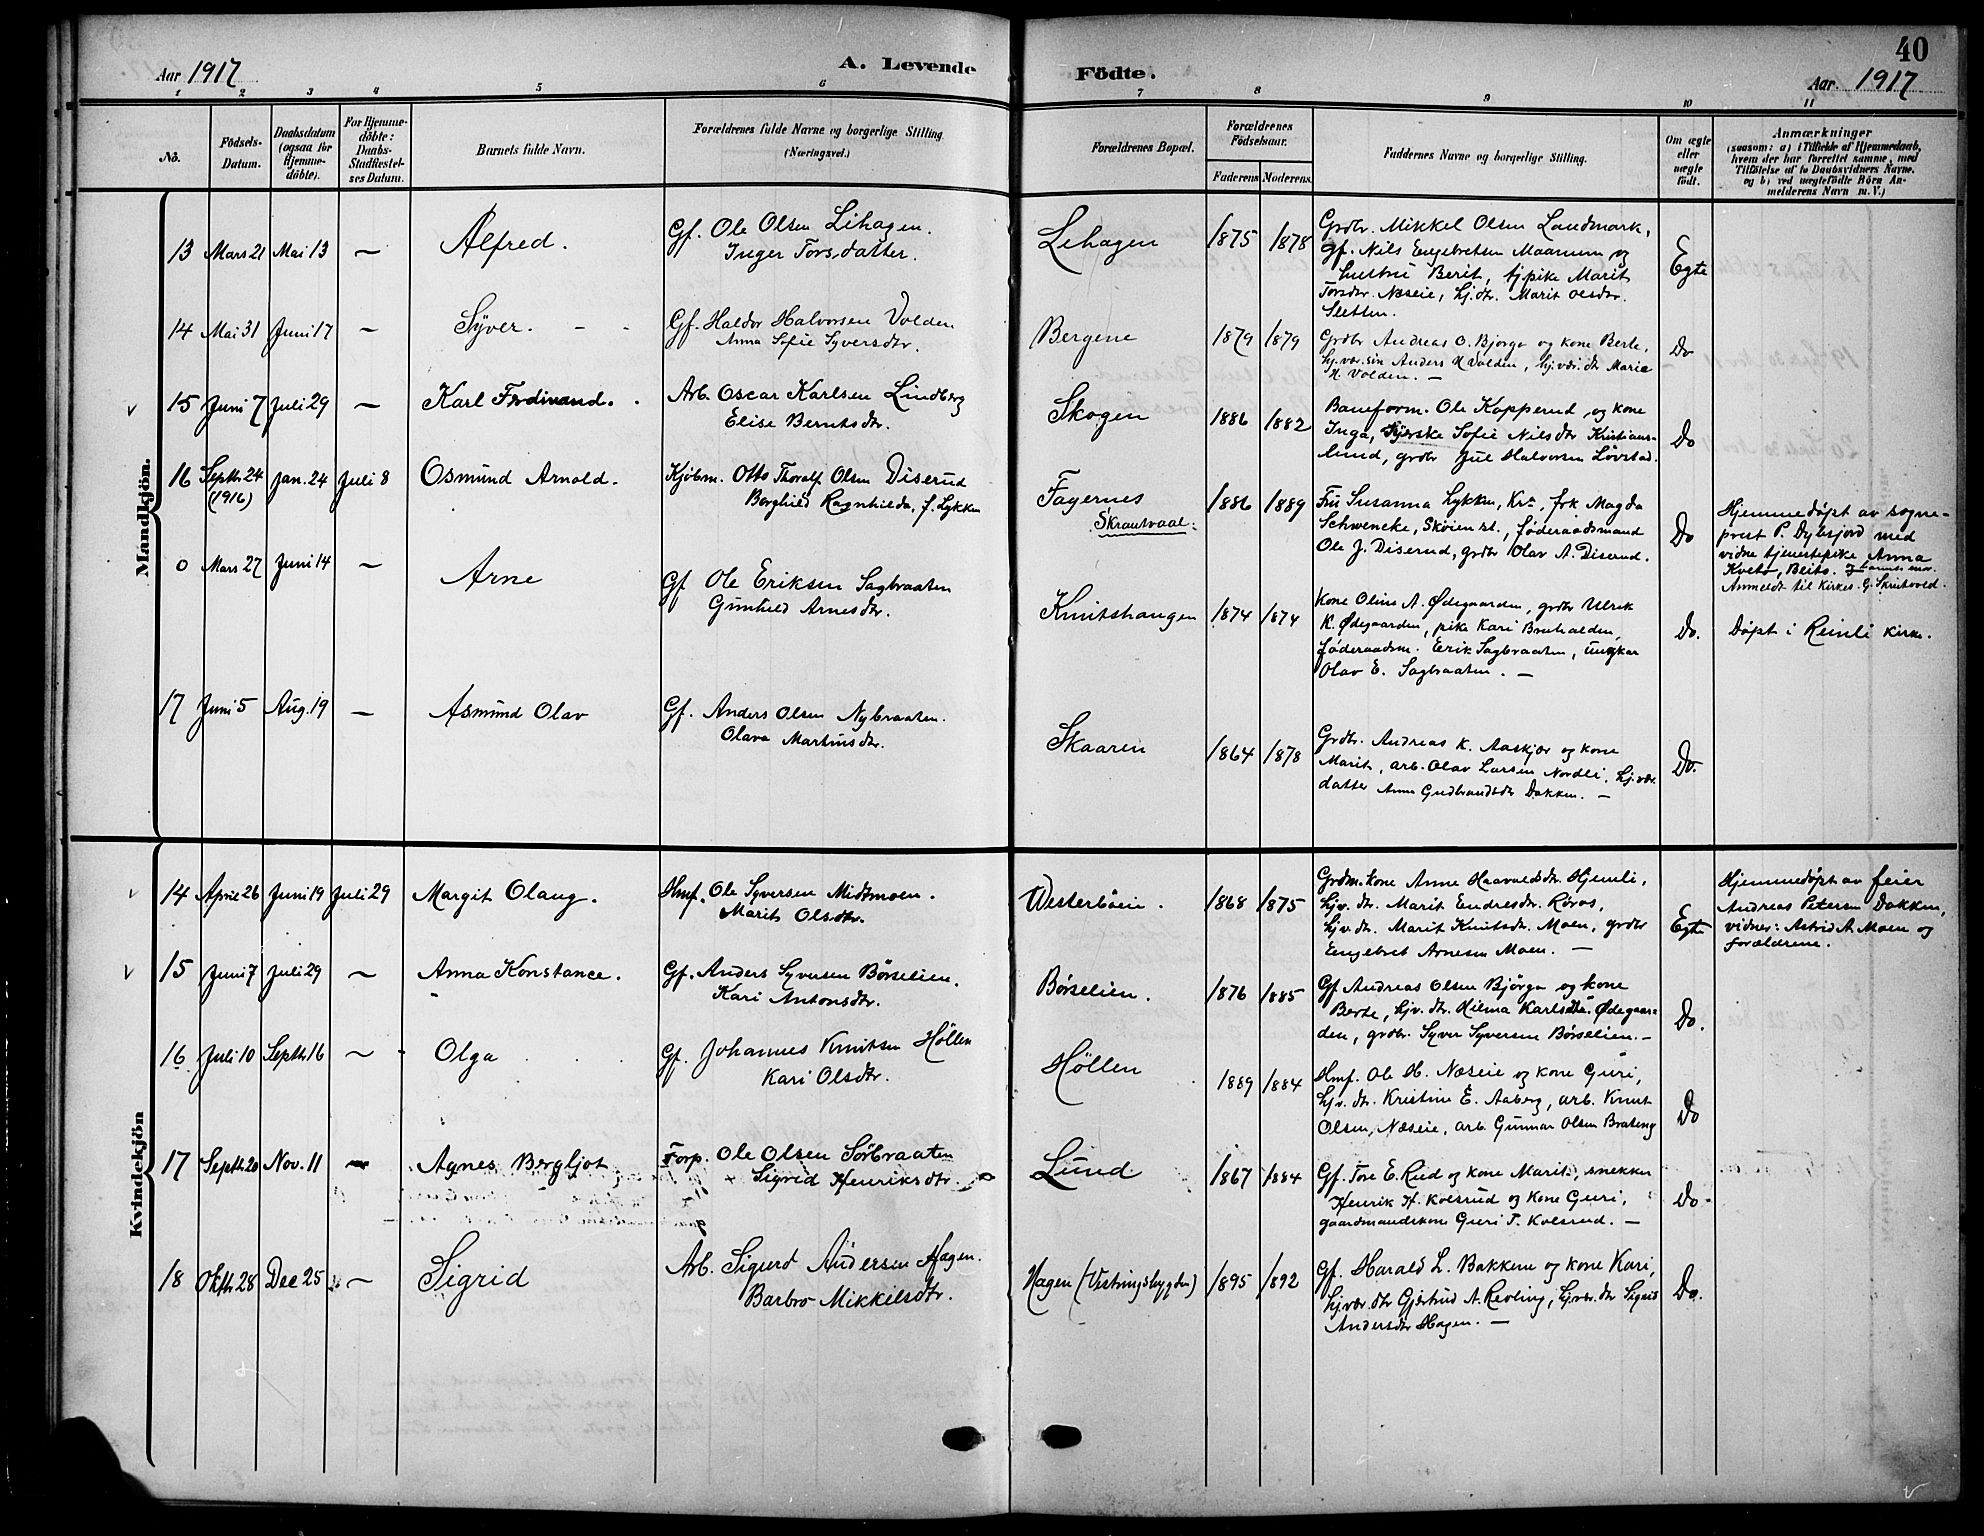 Aar 1917
A. Levende
Födte.
40
Aar. 1917
1 2 3 4 5 6 7 8 9 10 11
No.
Födsels-
Datum.
Daabsdatum
(ogsaa for
Hjemme-
döbte).
For Hjemme-
döbte:
Daabs-
Stadfæstel-
ses Datum.
Barnets fulde Navn.
Forældrenes fulde Navne og borgerlige Stilling.
(Næringsvei.)
Forældrenes Bopæl.
Forældrenes
Födselsaar.
Faderens Moderens
Faddernes Navne og borgerlige Stilling.
Om ægte
eller
uægte
født.
Anmærkninger
(saasom: a) i Tilfælde af Hjemmedaab,
hvem der har forrettet samme, med
Tilføielse af to Daabsvidners Navne.
og b) ved uægtefødte Börn An-
melderens Navn m. V.)
Mandkjön.
13 Mars 21 Mai 13 — Alfred.
Gf. Ole Olsen Lihagen.
Inger Torsdatter.
Lihagen 1875 1878
Grdbr. Mikkel Olsen Landmark,
Gf. Nils Engebretsen Maanum og
hustru Berit, tj.pike Marit
Torsdtr. Næseie, hj.dtr. Marit Olsdtr.
Sletten.
Egte
14 Mai 31 Juni 17 — Syver.
Gf. Haldor Halvorsen Volden
Anna Sofie Syversdtr.
Bergene 1879 1879
Grdbr Andreas O. Bjørgo og kone Berte,
hj.vær. søn Anders H Volden, hj.vær. dtr Marie
H Volden. —
Do
15 Juni 7 Juli 29 — Karl Ferdinand.
Arb. Oscar Karlsen Lindberg
Elise Berntsdtr.
Skogen 1886 1882
Baneform. Ole Kopperud, og kone
Inga, Syerske Sofie Nilsdtr Kristians-
lund, grdbr Jul Halvorsen Løvstad.
Do
16 Septb. 24 (1916) Jan. 24 Juli 8 Osmund Arnold.
Kjøbm. Otto Thoralf Olsen Diserud
Borghild Ragnhilda, f. Lykken
Fagernes
Skrautvaal.
1886 1889
Fru Susanna Lykken, Kr., frk Magda
Schwencke, Skoien st., føderaadsmand
Ole J. Diserud, grdbr Olav A. Diserud.
Do
Hjemmedøpt av sogne-
prest P. Dybsjord med
vidne tjenestepike Anna
Kveto, Beito.
Anmeldt til Kirkes. G. Skrutvold.
0 Mars 27 Juni 14 — Arne
Gf Ole Eriksen Sagbraaten
Gunhild Arnesdtr.
Knutshaugen 1874 1874
Kone Oline A. Ødegaarden, grdbr Ulrik
K. Ødegaarden, pike Kari Bruhalden,
føderaadsm. Erik Sagbraaten, ungkar
Olav E. Sagbraaten. —
Do.
Døpt i Reinli kirke.
17 Juni 5 Aug. 19 — Asmund Olav
Gf. Anders Olsen Nybraaten.
Olava Martinsdtr.
Skaaren 1864 1878
Grdbr. Andreas K. Aaskjær og kone
Marit, arb. Olav Larsen Nordli, hj.vær.
datter Anne Gudbrandsdtr Dokken. —
Do.
Kvindekjön
14 April 26 Juni 19 Juli 29 Margit Olaug.
Hmf. Ole Syversen Midtmoen.
Marit Olsdtr.
Westerbøein. 1868 1875
Grdm.kone Anne Haavaldsdtr. Hjemli,
hj.v. dtr. Marit Endresdtr. Røros,
hj.v. dtr. Marit Knutsdtr. Moen, grdbr
Engebret Arnesen Moen. —
Egte
Hjemmedøpt av feier
Andreas Petersen Dokken,
vidner: Astrid A. Moen og
forældrene.
15 Juni 7 Juli 29 — Anna Konstance.
Gf. Anders Syversen Børselien.
Kari Antonsdtr.
Børselien. 1876 1885
Gf. Andreas Olsen Bjørgo og kone
Berte, hj.v. dtr. Hilma Karlsdtr. Ødegaar-
den, grdbr. Syver Syversen Børselien. —
Do.
16 Juli 10 Septb. 16 — Olga
Gf. Johannes Knutsen Høllen
Kari Olsdtr.
Høllen 1889 1884
Hmf. Ole H. Næseie og kone Guri,
hj.v. dtr. Kristine E. Aaberg, arb. Knut
Olsen, Næseie, arb. Gunnar Olsen Brateng
Do
17 Septb. 20 Nov. 11 — Agnes Bergljot
Forp. Ole Olsen Sørbraaten
Sigrid Henriksdtr.
Lund 1867 1884
Gf. Tore E. Rud og kone Marit, snekker
Henrik H. Kolsrud og kone Guri,
gaardmandskone Guri T. Kolsrud. —
Do.
18 Oktb. 28 Dec 25 — Sigrid
Arb. Sigurd Andersen Hagen.
Barbro Mikkilsdtr.
Hagen (Vestringsbygden) 1895 1892
Gf. Harald L. Bakkene og kone Kari,
hj.vær. dtr Gjertrud A. Revling, hj.vær. dtr Sigrid
Andersdtr Hagen. —
Do.